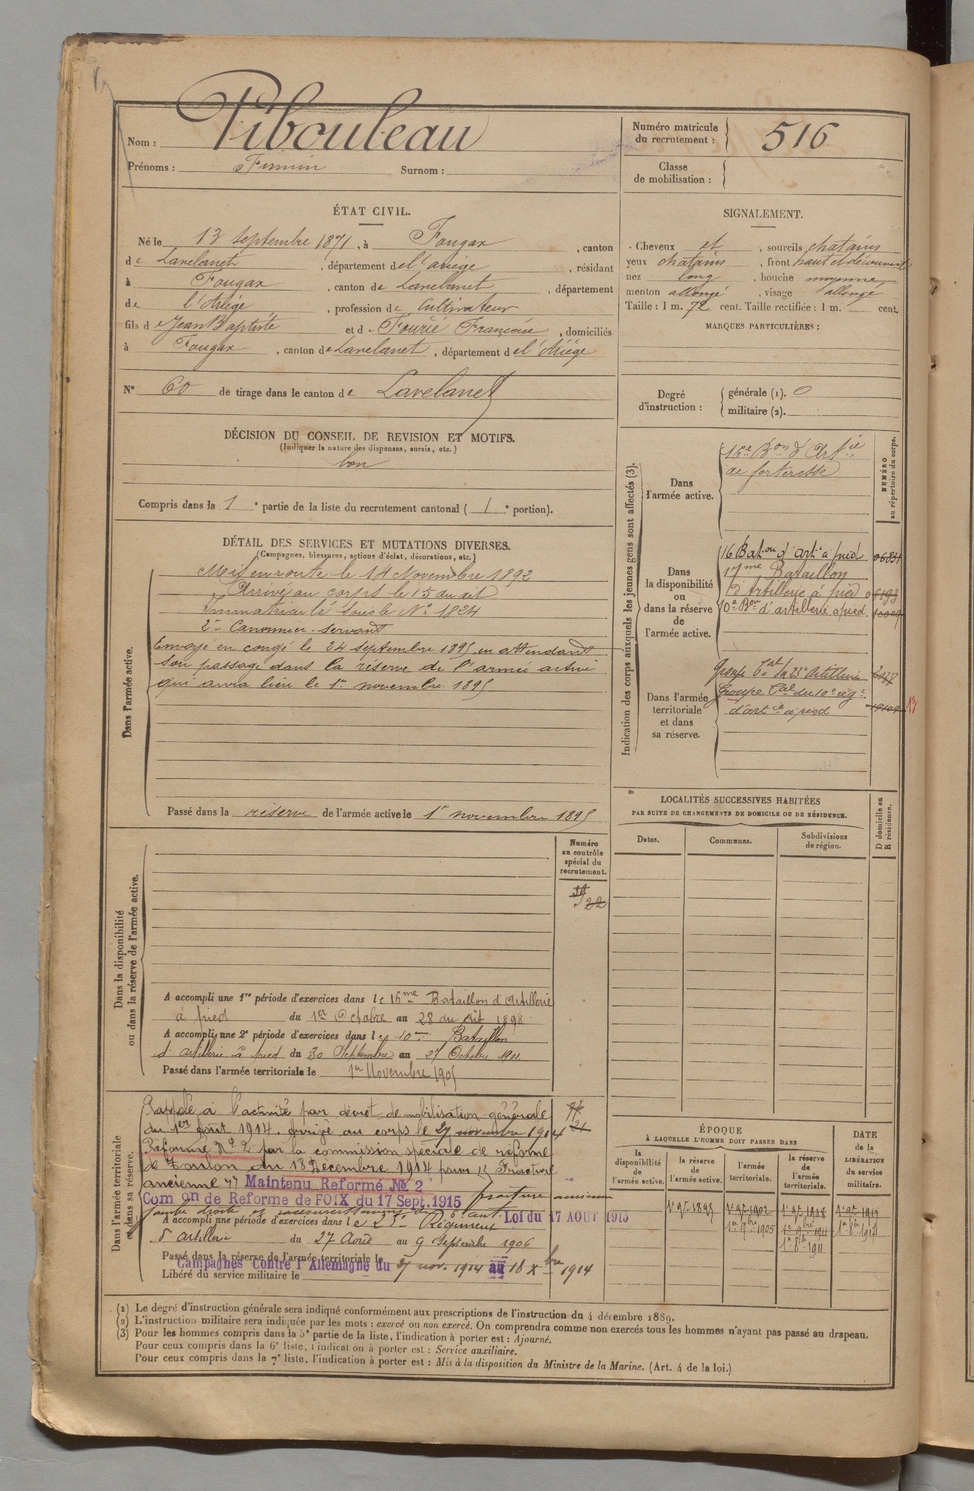 Nom : Pibouleau
Prénoms : Firmin Surnom :
Numéro matricule du recrutement : 516
Classe de mobilisation :
ÉTAT CIVIL.
Né le 13 Septembre 1871, à Fougax, canton
de Lavelanet, département de l'ariège, résidant
à Fougax, canton de Lavelanet, département
de l'Ariège, profession de Cultivateur
fils de Jean Baptiste et de Fourié Françoise, domiciliés
à Fougax, canton de Lavelanet, département de l'Ariège
N° 60 de tirage dans le canton de Lavelanet
SIGNALEMENT.
Cheveux et, sourcils chatains
yeux chatains, front haut et découvert
nez long, bouche moyenne
menton allongé, visage allongé
Taille : 1 m. 72 cent. Taille rectifiée : 1 m. cent.
MARQUES PARTICULIÈRES :
Degré d'instruction : générale (1). 0
militaire (2).
DÉCISION DU CONSEIL DE REVISION ET MOTIFS.
(Indiquer la nature des dispenses, sursis, etc.)
bon
Compris dans la 1e partie de la liste du recrutement cantonal ( 1e portion).
DÉTAIL DES SERVICES ET MUTATIONS DIVERSES.
(Campagnes, blessures, actions d'éclat, décorations, etc.)
Dans l'armée active.
Mis en route le 14 Novembre 1892
Arrivé au corps le 15 du dit
Immatriculé sous le N° 1824
2e Canonnier-servant
Envoyé en congé le 24 septembre 1895 en attendant
son passage dans la réserve de l'armée active
qui aura lieu le 1er novembre 1895
Passé dans la réserve de l'armée active le 1er novembre 1895
Indication des corps auxquels les jeunes gens sont affectés (3).
NUMÉRO au répertoire du corps.
Dans l'armée active.
16e Bon d'Artie
de forteresse
Dans la disponibilité ou dans la réserve de l'armée active.
16 Bataon d'arte à pied
17me Bataillon
d'Artillerie à pied
10e Bon d'artillerie à pied
Dans l'armée territoriale et dans sa réserve.
Groupe Tal du 23e Artillerie
Groupe Tal du 10e rég.
d'artie à pied
LOCALITÉS SUCCESSIVES HABITÉES
PAR SUITE DE CHANGEMENTS DE DOMICILE OU DE RÉSIDENCE.
Dates. Communes. Subdivisions de région. D domicile ou R résidence.
Dans la disponibilité ou dans la réserve de l'armée active.
Numéro au contrôle spécial du recrutement.
A accompli une 1re période d'exercices dans le 16me Bataillon d'Artillerie
à pied du 1er Octobre au 28 du dit 1898
A accompli une 2e période d'exercices dans le 10me Bataillon
d'artillerie à pied du 30 Septembre au 27 Octobre 1901
Passé dans l'armée territoriale le 1er Novembre 1905
Dans l'armée territoriale et dans sa réserve.
Rappelé à l'activité par décret de mobilisation générale
du 1er août 1914. arrivé au corps le 27 novembre 1914
Réformé N° 2 par la commission spéciale de réforme
de Toulon du 18 Décembre 1914 pour "Fracture
ancienne" Maintenu Reformé No 2
Comon de Reforme de FOIX du 17 Sept.1915 fracture ancienne
jambe droite
Loi du 17 AOUT 1915
A accompli une période d'exercices dans le 23e Régiment
d'Artillerie du 27 Août au 9 Septembre 1906
Passé dans la réserve de l'armée territoriale le
Campagnes Contre l'Allemagne du 27 nov. 1914 au 18 Xbre 1914
Libéré du service militaire le
ÉPOQUE
À LAQUELLE L'HOMME DOIT PASSER DANS
la disponibilité de l'armée active. la réserve de l'armée active. l'armée territoriale. la réserve de l'armée territoriale. DATE de la LIBÉRATION du service militaire.
(1) Le degré d'instruction générale sera indiqué conformément aux prescriptions de l'instruction du 4 décembre 1889.
(2) L'instruction militaire sera indiquée par les mots : exercé ou non exercé. On comprendra comme non exercés tous les hommes n'ayant pas passé au drapeau.
(3) Pour les hommes compris dans la 5e partie de la liste, l'indication à porter est : Ajourné.
Pour ceux compris dans la 6e liste, l'indication à porter est : Service auxiliaire.
Pour ceux compris dans la 7e liste, l'indication à porter est : Mis à la disposition du Ministre de la Marine. (Art. 4 de la loi.)